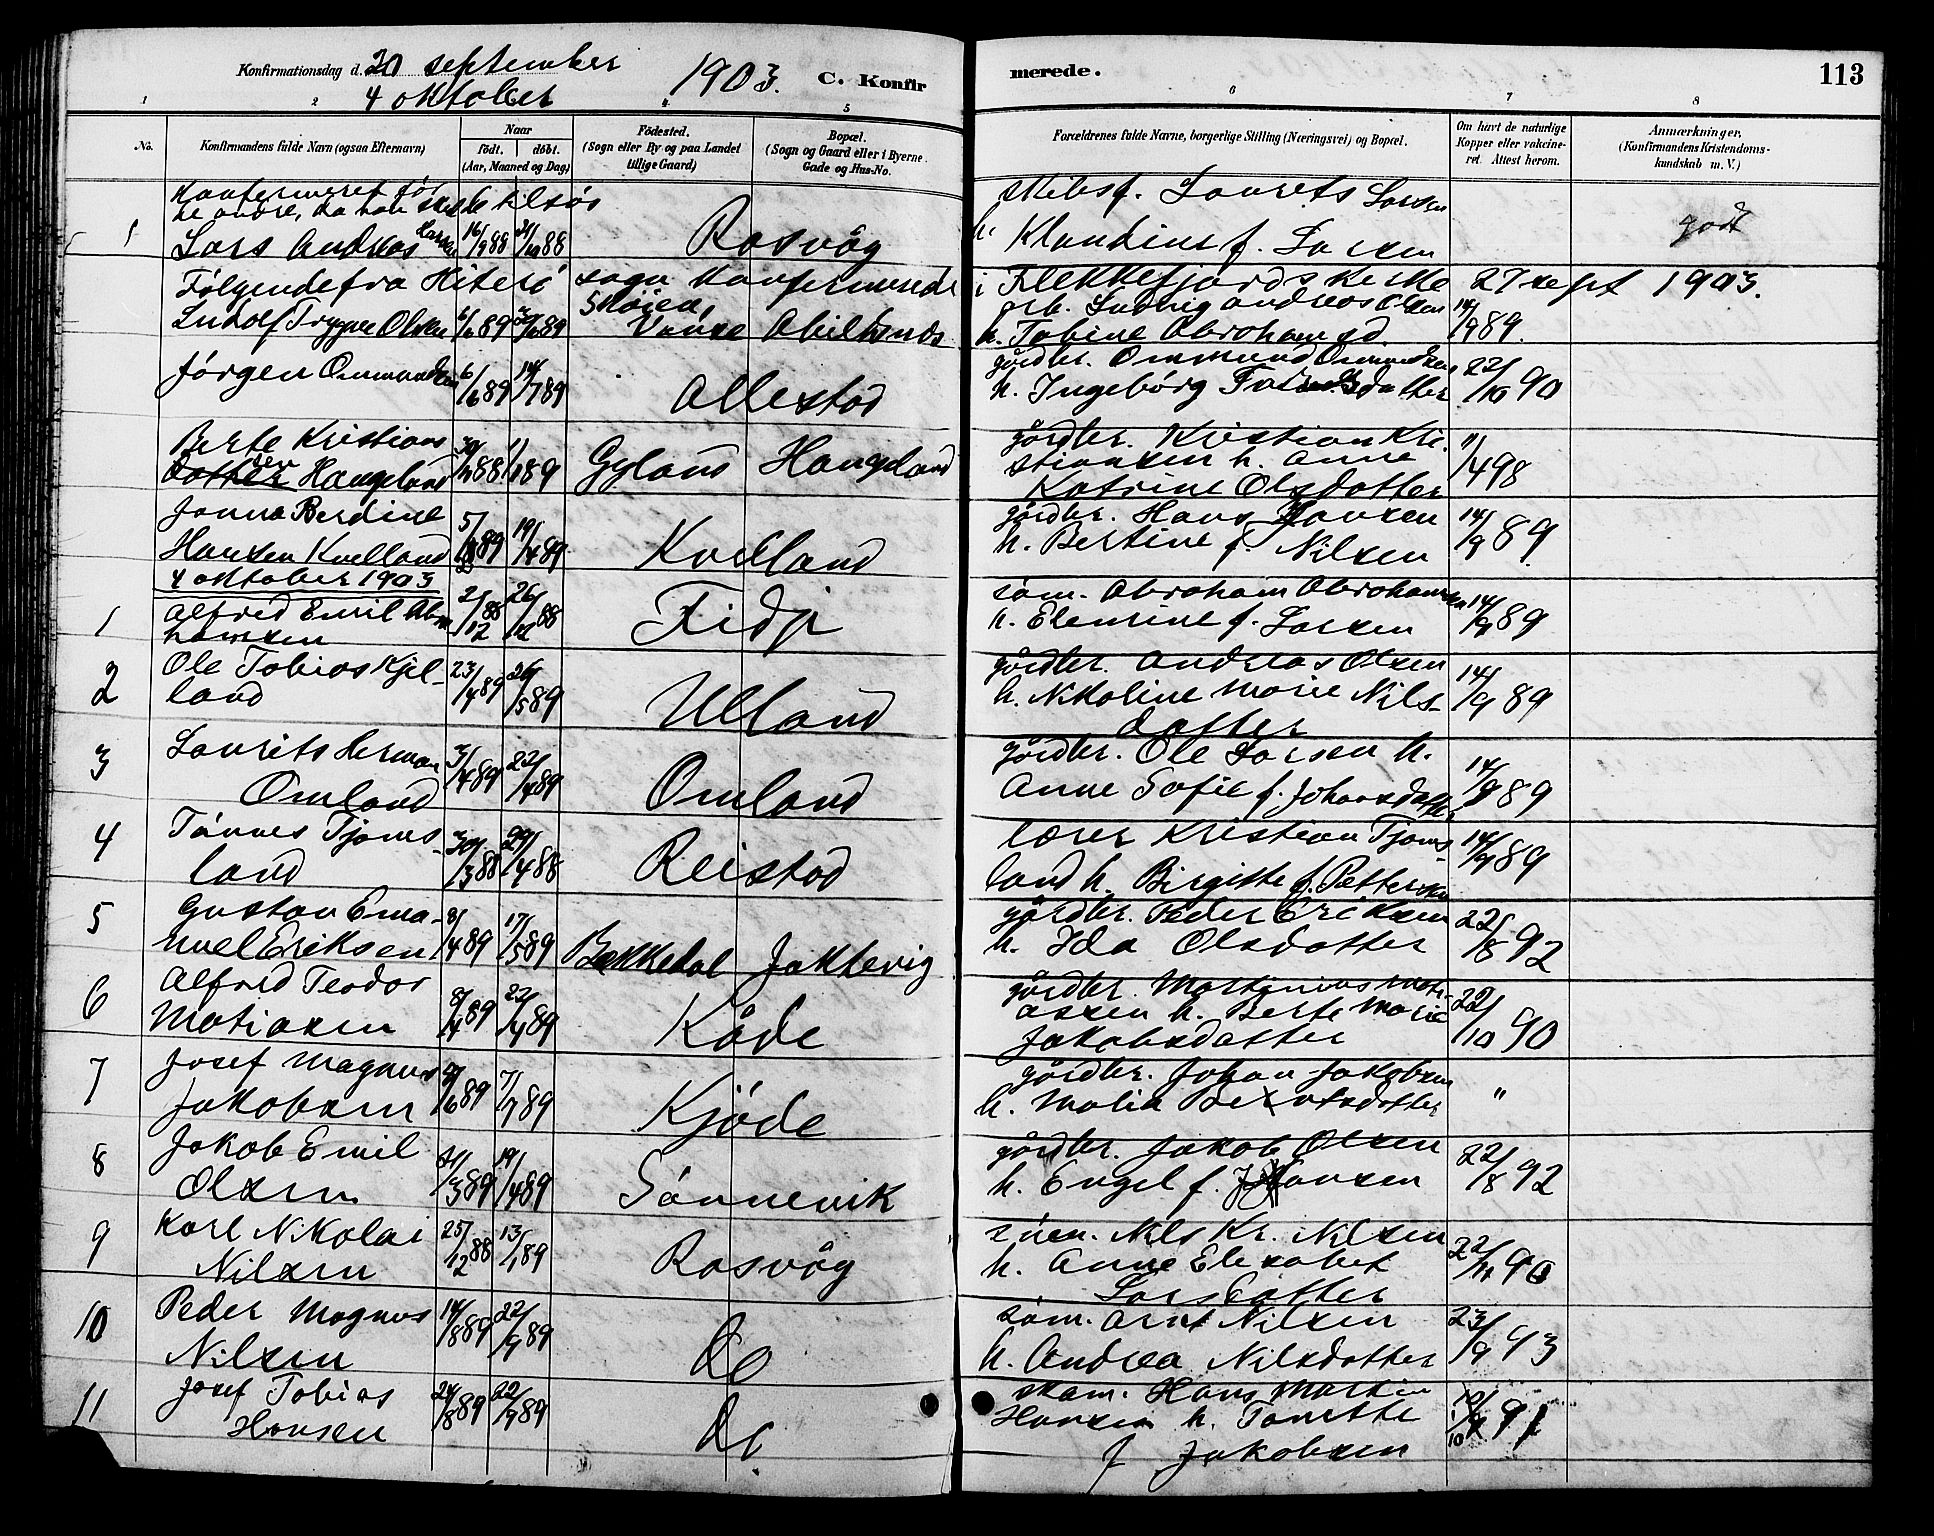 Konfirmationsdag d. 20 september
4 oktober 1903.
C. Konfirmerede.
113
1 2 4 5 6 7 8
No.
Konfirmandens fulde Navn (ogsaa Efternavn)
Naar
født. døbt.
(Aar, Maaned og Dag)
Fødested.
(Sogn eller By og paa Landet tillige Gaard)
Bopæl.
(Sogn og Gaard eller i Byerne Gade og Hus-No.
Forældrenes fulde Navne, borgerlige Stilling (Næringsvei) og Bopæl.
Om havt de naturlige Kopper eller vakcineret. Attest herom.
Anmærkninger,
(Konfirmandens Kristendomskundskab m. V.)
Konfermeret før
de andre, da han skal tilsøs
1 Lars Andreas Larsen 16/9 88 Rasvåg
Skibsf. Laurets Larsen
h. Klaudine f. Larsen
godt
Følgende fra Hiterø sogn konfermerede i Flekkefjords kerke 27 sept 1903.
Ludolf Trygve Olsen 6/6 89 Vanse Abilsnes
arb. Ludvig Andreas Olsen
h. Tobine Abrahamsd. 14/9 89.
Jørgen Ommundsen 6/6 89 14/7 89 Allestad
gårdbr. Ommund Ommundsen
h. Ingebørg 22/10 90
Berte Kristians
datter Haugeland 89 Gyland Haugeland
gårdbr. Kristian Kristiansen h. Anne
Katrine Olsdatter 11/4 98
Janna Berdine
Hansen Kvelland 89 19/4 89 Kvelland
gårdbr. Hans Hansen
h. Bertine f. Nilsen 14/9 89.
4 oktober 1903
1 Alfred Emil Abrahamsen 2/12 88 26/12 88 Fidje
søm. Abraham Abrahamsen
h. Elenrine f. Larsen 14/9 89
2 Ole Tobias Kjelland 23/4 89 26/5 89 Ulland
gårdbr. Andreas Olsen
h. Nikoline Marie Nilsdatter 14/9 89
3 Laurits Herman
Omland 3/4 89 22/4 89 Omland
gårdbr. Ole Larsen h.
Anne Sofie f. Johansdatter 14/9 89
4 Tønnes Tjomsland 30/3 88 29/4 88 Reistad
lærer Kristian Tjomsland h. Birgitte f. Pettersen 14/9 89
5 Gustav Emanuel Eriksen 8/4 89 17/5 89 Bekkedal Jaktevig
gårdbr. Peder Eriksen
h. Ida Olsdatter 22/8 92
6 Alfred Teodor
Matiasen 8/4 89 22/4 89 Kåde
gårdbr. Martinius Matiassen h. Berte Marie
Jakobsdatter 22/10 90
7 Josef Magnus
Jakobsen 89 7/7 89 Kjøde
gårdbr. Johan Jakobsen
h. Malia Berntsdatter "
8 Jakob Emil
Olsen 21/3 89 19/4 89 Sønnevik
gårdbr. Jakob Olsen
h. Engel f. Hansen 22/8 92
9 Karl Nikolai
Nilsen 25/12 88 13/1 89 Rasvåg
søem. Nils Kr. Nilsen
h. Anne Elesabet
Larsdatter 90
10 Peder Magnus
Nilsen 14/8 89 22/9 89 Do
søm. Arnt Nilsen
h. Andrea Nilsdatter 23/9 93
11 Josef Tobias
Hansen 24/8 89 22/9 89 Do
skom. Hans Martin
Hansen h. Tomette
f Jakobsen 91